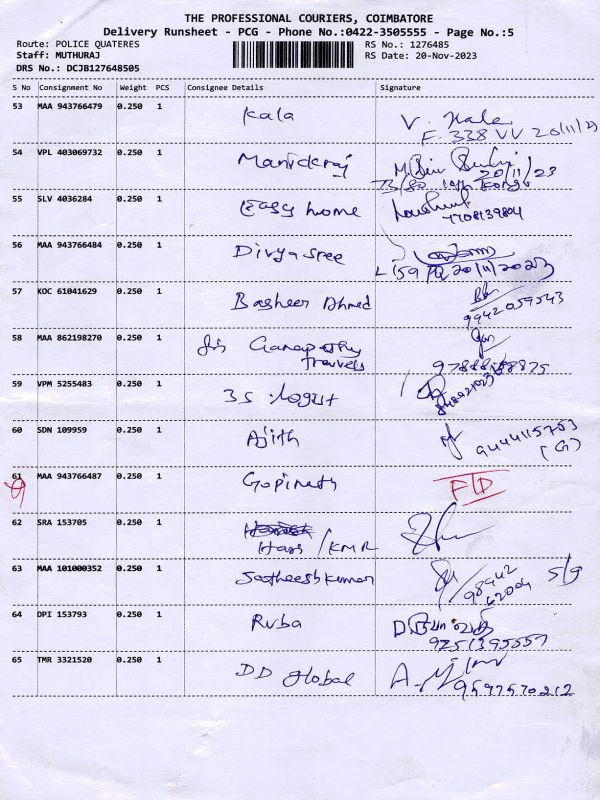 THE PROFESSIONAL COURIERS, COIMBATORE
Delivery Runsheet - PCG - Phone No.:0422-3505555 - Page No.:5
Route: POLICE QUATERES RS No.: 1276485
Staff: MUTHURAJ RS Date: 20-Nov-2023
DRS No.: DCJB127648505
S No Consignment No Weight PCS Consignee Details Signature
53 MAA 943766479 0.250 1 Kala V. Kala
F. 338 VV 20/11/23
54 VPL 403069732 0.250 1 Manickraj
20/11/23
55 SLV 4036284 0.250 1 Easy home
7708139804
56 MAA 943766484 0.250 1 Divya sree
20/11/2023
57 KOC 61041629 0.250 1 Basheer Ahmed
9942059543
58 MAA 862198270 0.250 1 Sri Ganapathy
Travels
59 VPM 5255483 0.250 1 3S
60 SDN 109959 0.250 1 Ajith 9444115753
(G)
61 MAA 943766487 0.250 1 Gopinath
62 SRA 153705 0.250 1
Hars / KMR
63 MAA 101000352 0.250 1 Satheeshkumar 98942 S/g
62004
64 DPI 153793 0.250 1 Ruba
9251395557
65 TMR 3321520 0.250 1 DD Global 9597570212